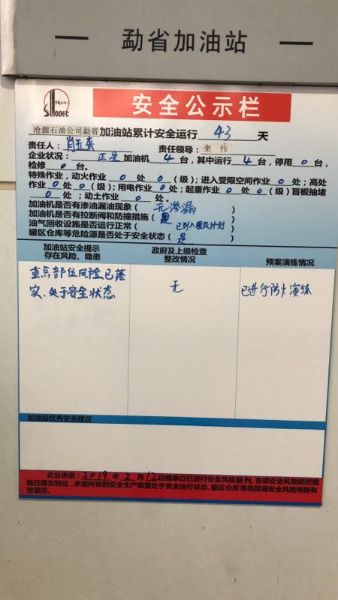 勐省加油站
Sinopec
安全公示栏
沧源石油公司勐省加油站累计安全运行 43 天
责任人: 责任领导:
企业状况: 正常 加油机 4 台, 其中运行 4 台, 停用 0 台,
检修 0 台。
特殊作业, 动火作业 0 处 0 (级); 进入受限空间作业 0 处; 高处
作业 0 处 0 (级); 用电作业 0 处; 起重作业 0 处 0 (级) 盲板抽堵
0 处; 动土作业 0 处。
加油机是否有渗油漏油现象( 无渗漏 )
加油机是否有拉断阀和防撞措施( 是 )
油气回收设施是否运行正常( 已列入建设计划 )
罐区仓库等危险源是否处于安全状态( 是 )
加油站安全提示 政府及上级检查 预案演练情况
存在风险、隐患 整改情况
重点部位风险已落 无 已进行防卡演练
实、处于安全状态
加油站优秀安全建议
企业承诺: 2019年2月12日我单位已进行安全风险研判, 各项安全风险防控措
施已落实到位, 承诺所有的安全生产装置处于安全运行状态, 罐区仓库等危险源安全风险得到有
效管控。